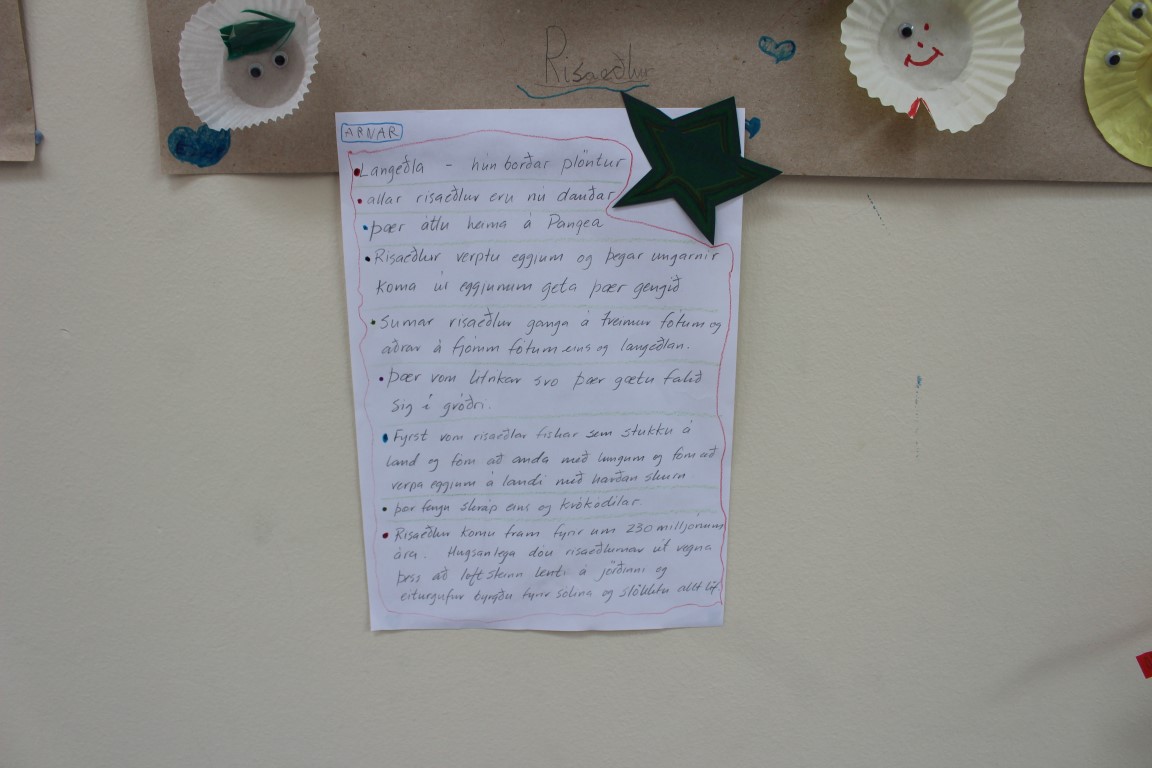 Risaeðlur
ARNAR
Langeðla - hún borðar plöntur
allar risaeðlur eru nú dauðar
þær áttu heima á Pangea
Risaeðlur verptu eggjum og þegar ungarnir
koma úr eggjunum geta þær gengið
Sumar risaeðlur ganga á tveimur fótum og
aðrar á fjórum fótum eins og langeðlan.
þær voru litríkar svo þær gætu falið
sig í gróðri.
Fyrst voru risaeðlar fiskar sem stukku á
land og fóru að anda með lungum og fóru að
verpa eggjum á landi með harðan skurn
þær fengu skráp eins og krókódílar.
Risaeðlur komu fram fyrir um 230 milljónum
ára. Hugsanlega dóu risaeðlurnar út vegna
þess að loftsteinn lenti á jörðinni og
eiturgufur byrgðu fyrir sólina og slökktu allt líf.